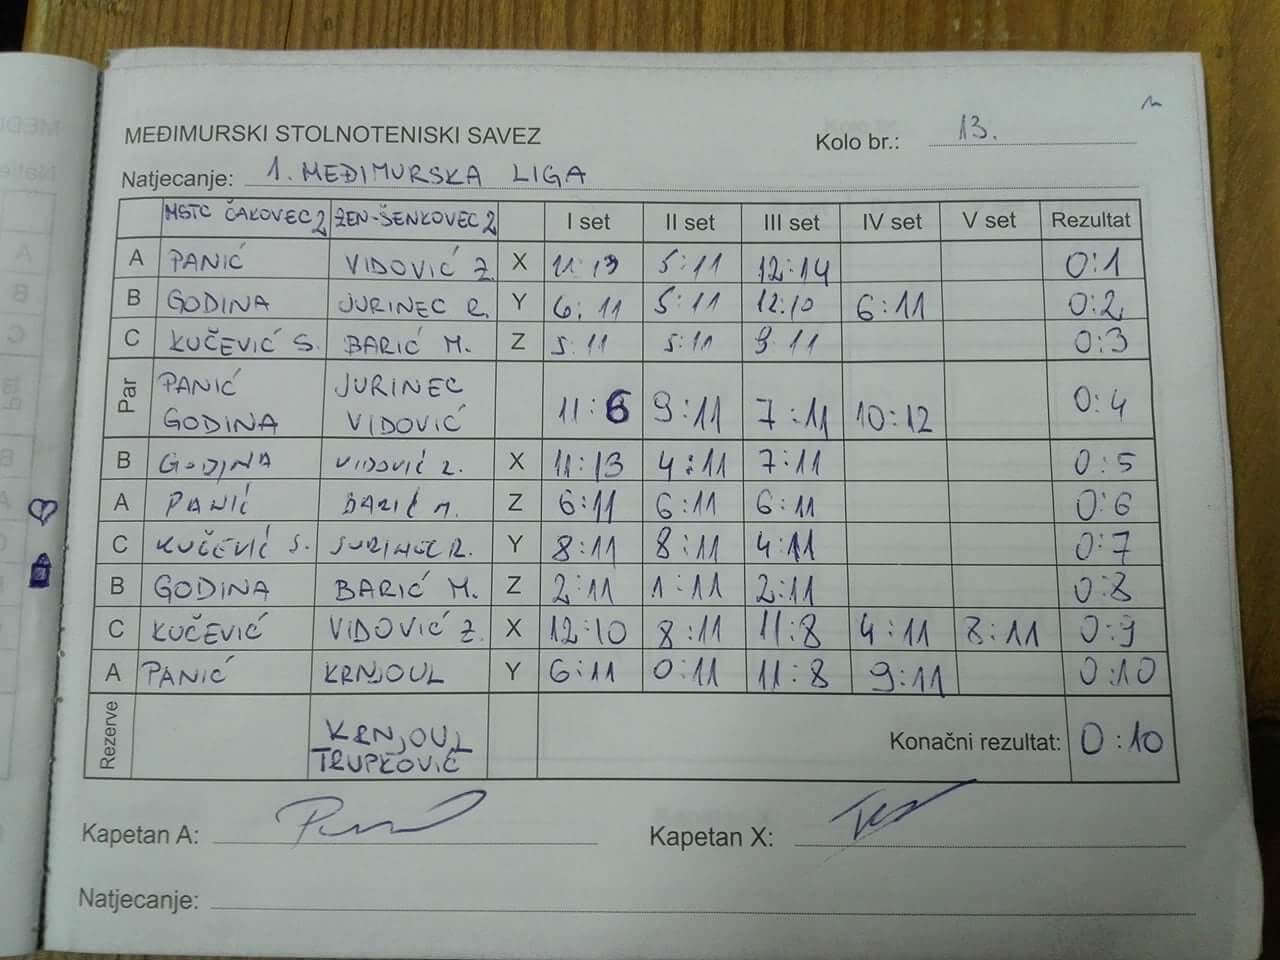 MEĐIMURSKI STOLNOTENISKI SAVEZ
Kolo br.: 13.
Natjecanje: 1. MEĐIMURSKA LIGA
MSTC ČAKOVEC 2 ŽEN-ŠENKOVEC 2 I set II set III set IV set V set Rezultat
A PANIĆ VIDOVIĆ Z. X 11:13 5:11 12:14 0:1
B GODINA JURINEC R. Y 6:11 5:11 12:10 6:11 0:2
C KUČEVIĆ S. BARIĆ M. Z 5:11 5:11 9:11 0:3
Par PANIĆ JURINEC
GODINA VIDOVIĆ 11:6 9:11 7:11 10:12 0:4
B GODINA VIDOVIĆ Z. X 11:13 4:11 7:11 0:5
A PANIĆ BARIĆ M. Z 6:11 6:11 6:11 0:6
C KUČEVIĆ S. JURINEC R. Y 8:11 8:11 4:11 0:7
B GODINA BARIĆ M. Z 2:11 1:11 2:11 0:8
C KUČEVIĆ VIDOVIĆ Z. X 12:10 8:11 11:8 4:11 8:11 0:9
A PANIĆ KRNJOUL Y 6:11 0:11 11:8 9:11 0:10
Rezerve KRNJOUL
TRUPKOVIĆ
Konačni rezultat: 0:10
Kapetan A:
Kapetan X:
Natjecanje: